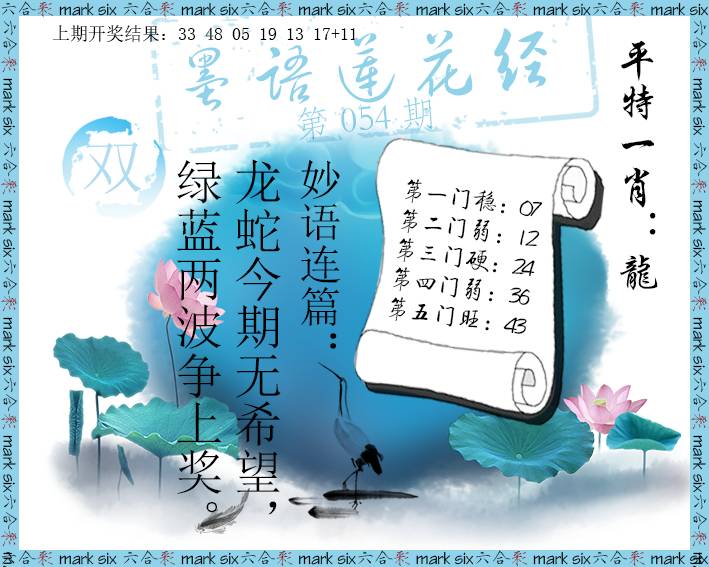 mark six 六合彩 mark six 六合彩 mark six 六合彩 mark six 六合彩 mark six 六合彩 mark six 六合彩
上期开奖结果：33 48 05 19 13 17+11
墨语莲花经
第 054 期
双
平特一肖：龍
第一门稳：07
第二门弱：12
第三门硬：24
第四门弱：36
第五门旺：43
妙语连篇：
龙蛇今期无希望，
绿蓝两波争上奖。
mark six 六合彩 mark six 六合彩 mark six 六合彩 mark six 六合彩 mark six 六合彩 mark six 六合彩